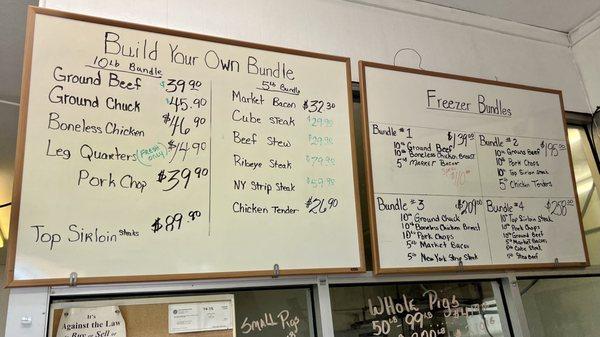 Build Your Own Bundle
10lb Bundle
Ground Beef $39.90
Ground Chuck $45.90
Boneless Chicken $46.90
Leg Quarters (Fresh only) $14.90
Pork Chop $39.90
Top Sirloin steaks $89.90
5lb Bundle
Market Bacon $32.30
Cube steak $29.95
Beef Stew $29.95
Ribeye Steak
NY Strip Steak $59.95
Chicken Tender $26.90
Freezer Bundles
Bundle #1 $139.00
10lb Ground Beef
10lb Boneless Chicken Breast
5lb Market Bacon
Bundle #2 $195.00
10lb Ground Beef
10lb Pork Chops
10lb Top Sirloin Steak
5lb Chicken Tenders
Bundle #3 $209.00
10lb Ground Chuck
10lb Boneless Chicken Breast
10lb Pork Chops
5lb Market Bacon
5lb New York Strip Steak
Bundle #4 $258.00
10lb Top Sirloin Steak
10lb Pork Chops
10lb Ground Beef
5lb Market Bacon
5lb Cube Steak
5lb Stew Beef
It's
Against the Law
to Buy or Sell
Small Pigs
Whole Pigs
50lb-99lb